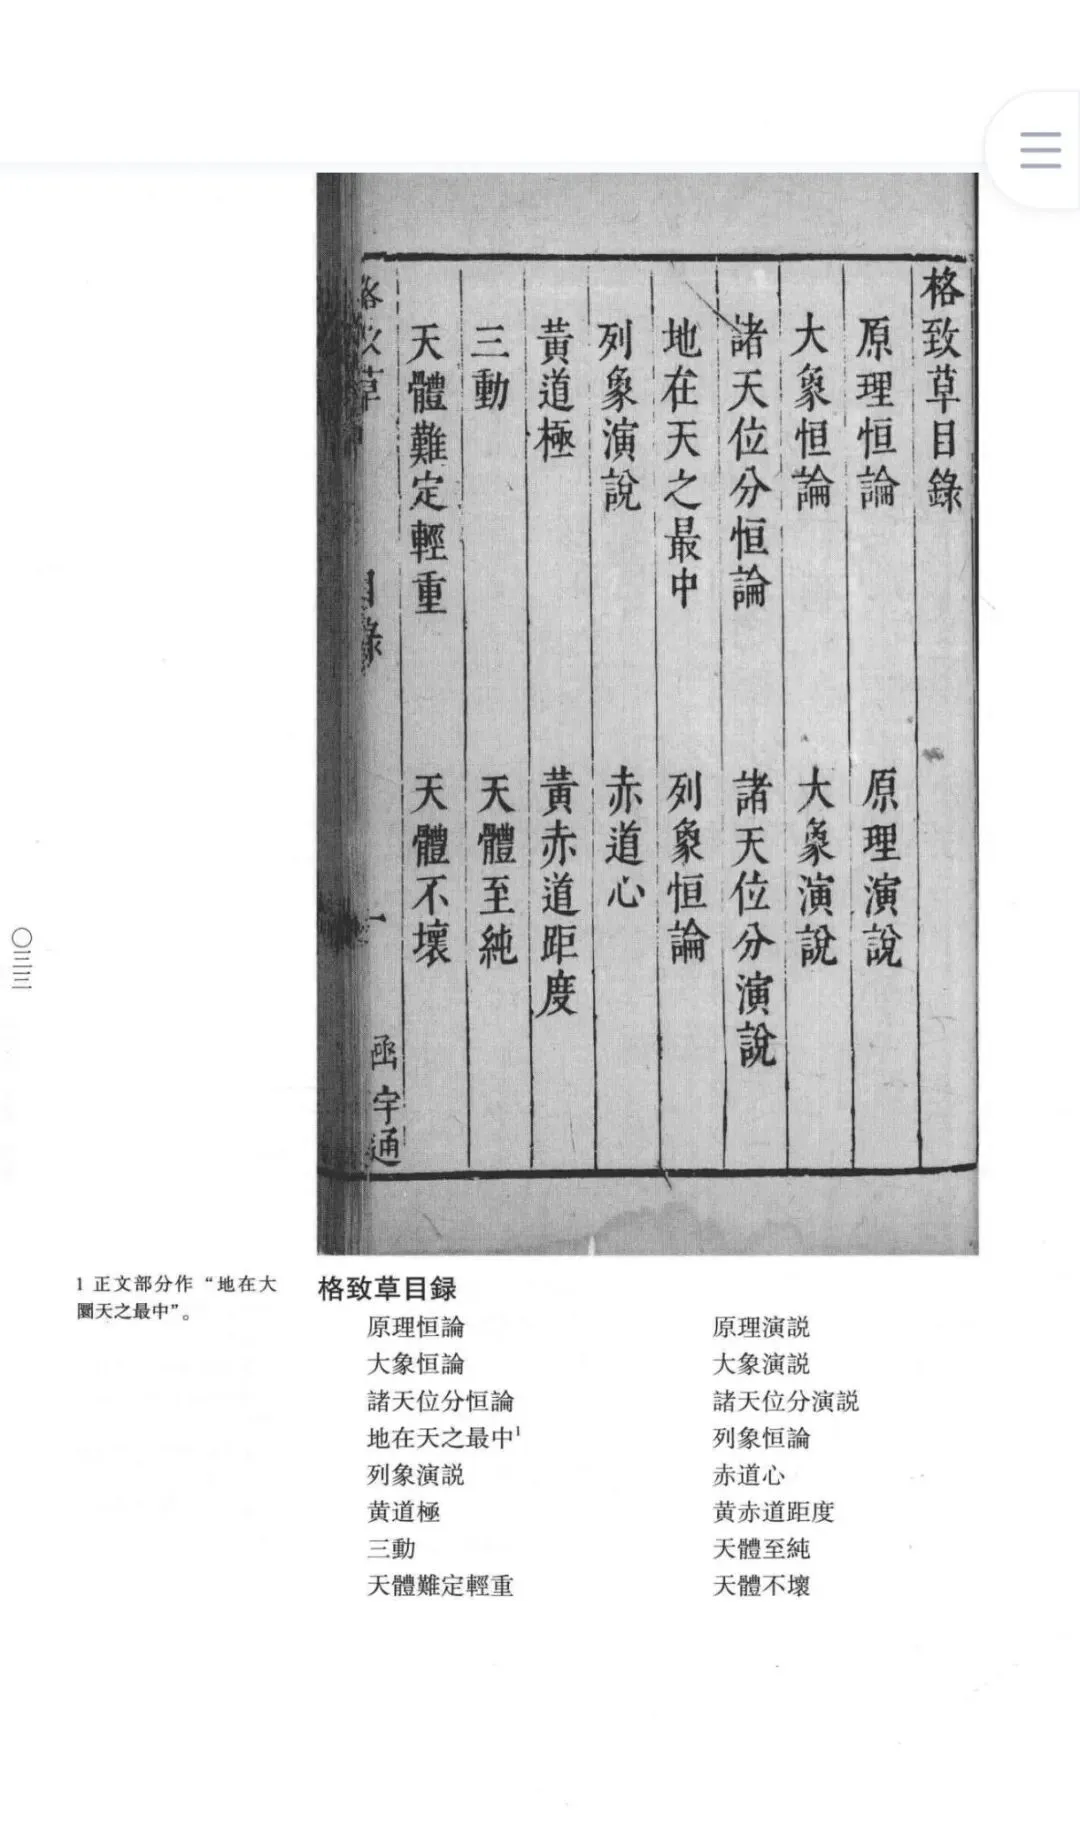 格致草目錄
原理恒論 原理演說
大象恒論 大象演說
諸天位分恒論 諸天位分演說
地在天之最中 列象恒論
列象演說 赤道心
黃道極 黃赤道距度
三動 天體至純
天體難定輕重 天體不壞
格致草 目錄 一 函宇通
〇三三
1 正文部分作“地在大
圜天之最中”。
格致草目録
原理恒論 原理演説
大象恒論 大象演説
諸天位分恒論 諸天位分演説
地在天之最中1 列象恒論
列象演説 赤道心
黄道極 黄赤道距度
三動 天體至純
天體難定輕重 天體不壞